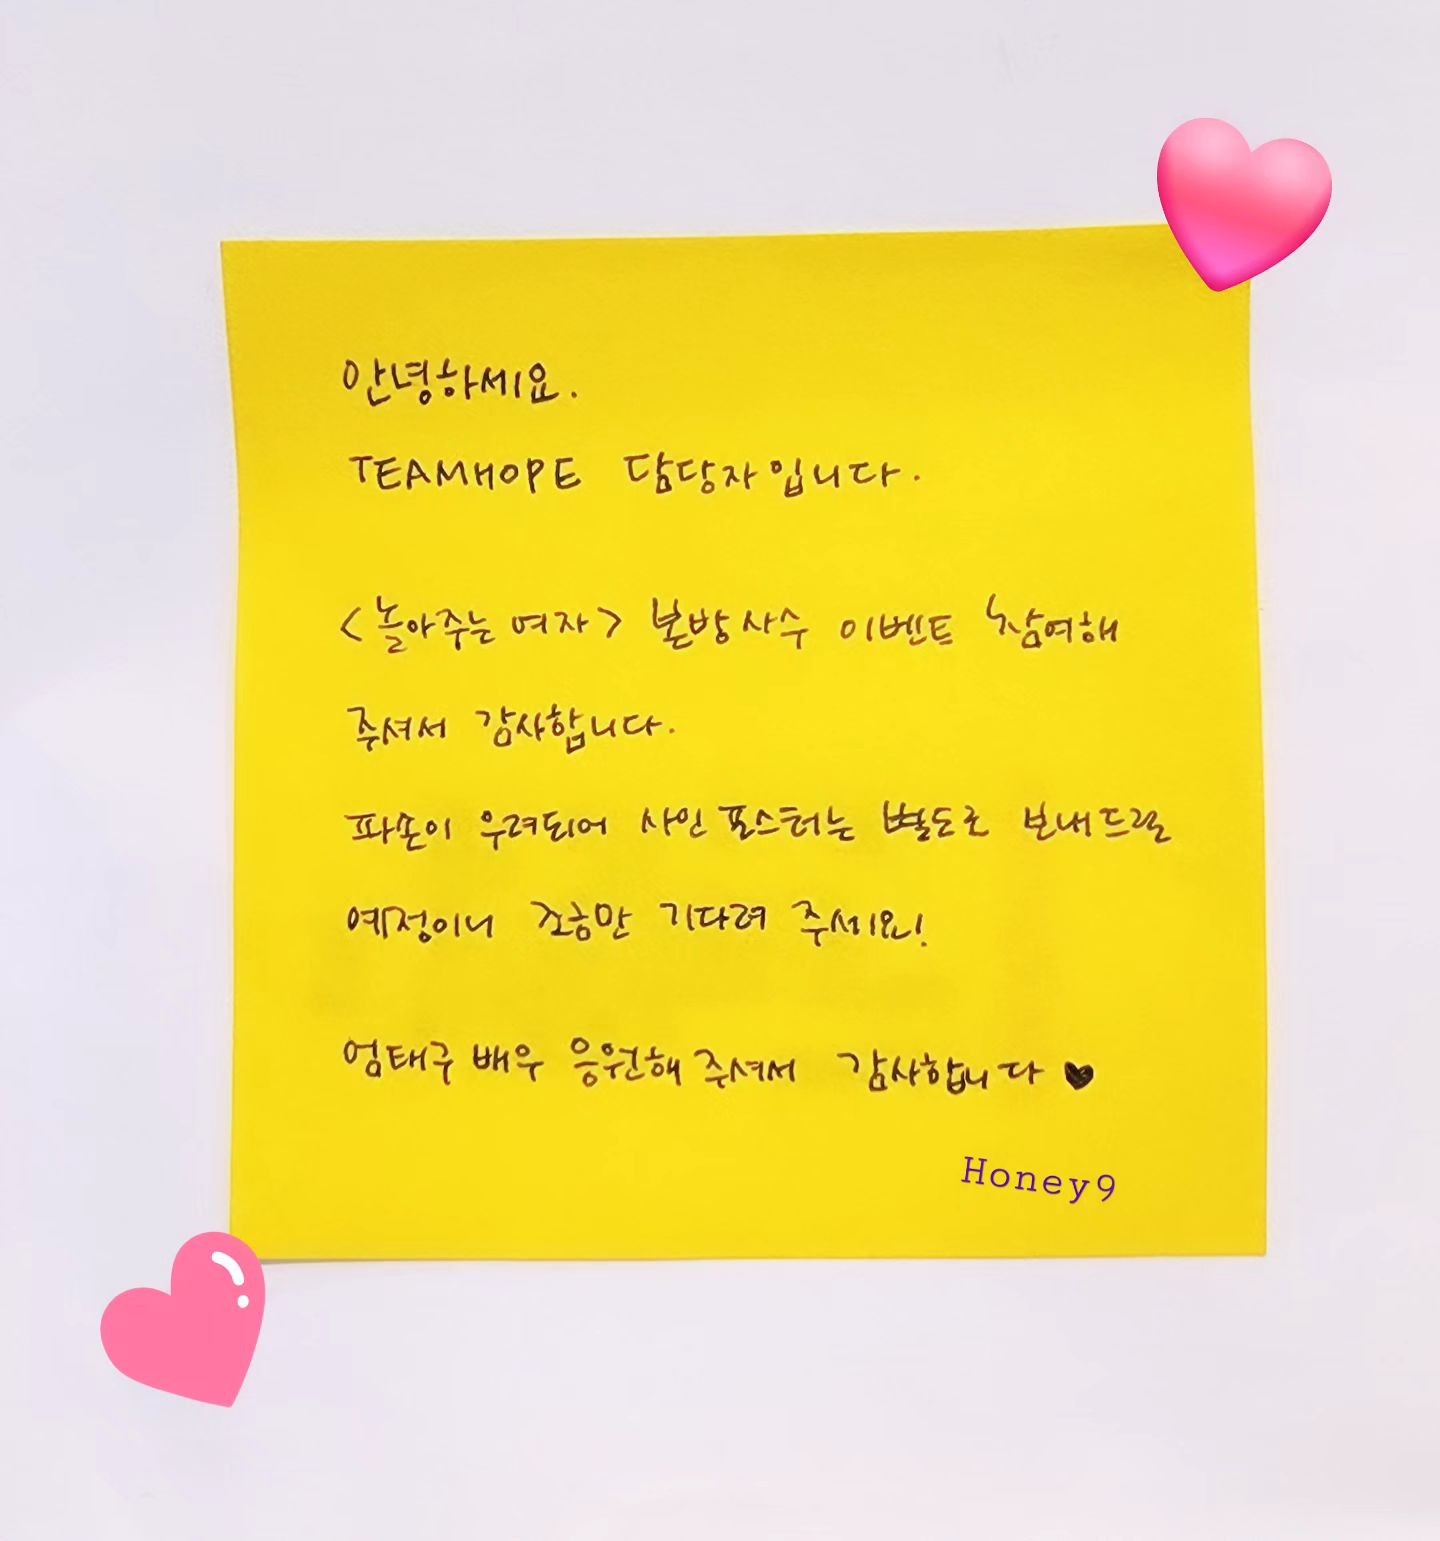 안녕하세요.
TEAMHOPE 담당자입니다.
<놀아주는 여자> 본방사수 이벤트 참여해
주셔서 감사합니다.
파손이 우려되어 사인 포스터는 별도로 보내드릴
예정이니 조금만 기다려 주세요!
엄태구 배우 응원해 주셔서 감사합니다 ♥
Honey9